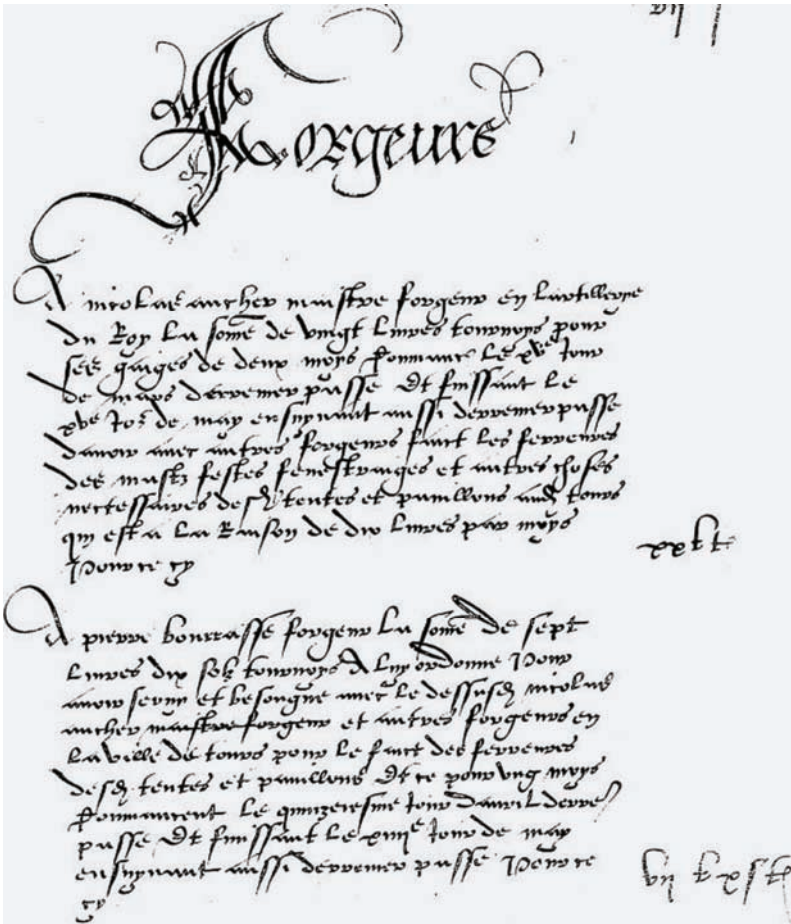 Forgeurs
A nicolas aucher maistre forgeur en lartillerye
du Roy La some de vingt Livres tournoys pour
ses gaiges de deux moys Commanc le xve Jour
de mars derrenier passe Et finissant le
xve Jor de may ensuyvant aussi derrenier passe
davoir avec autres forgeurs faict les ferreures
des mastz festes fenestraiges et autres choses
necessaires desd tentes et pavillons aud tours
qui est a La Raison de dix Livres par moys
Pour ce cy
xx l t
A pierre bourrasse forgeur La some de sept
Livres dix solz tournoys A luy ordonne Pour
avoir servy et besongne avec le dessusd nicolas
aucher maistre forgeur et autres forgeurs en
La ville de tours pour le faict des ferreures
desd tentes et pavillons Et ce pour ung moys
Commancent le quinzeiesme Jour davril derre
passe Et finissant le xiiiie Jour de may
ensuyvant aussi derrenier passe Pour ce
cy
vii l x s t